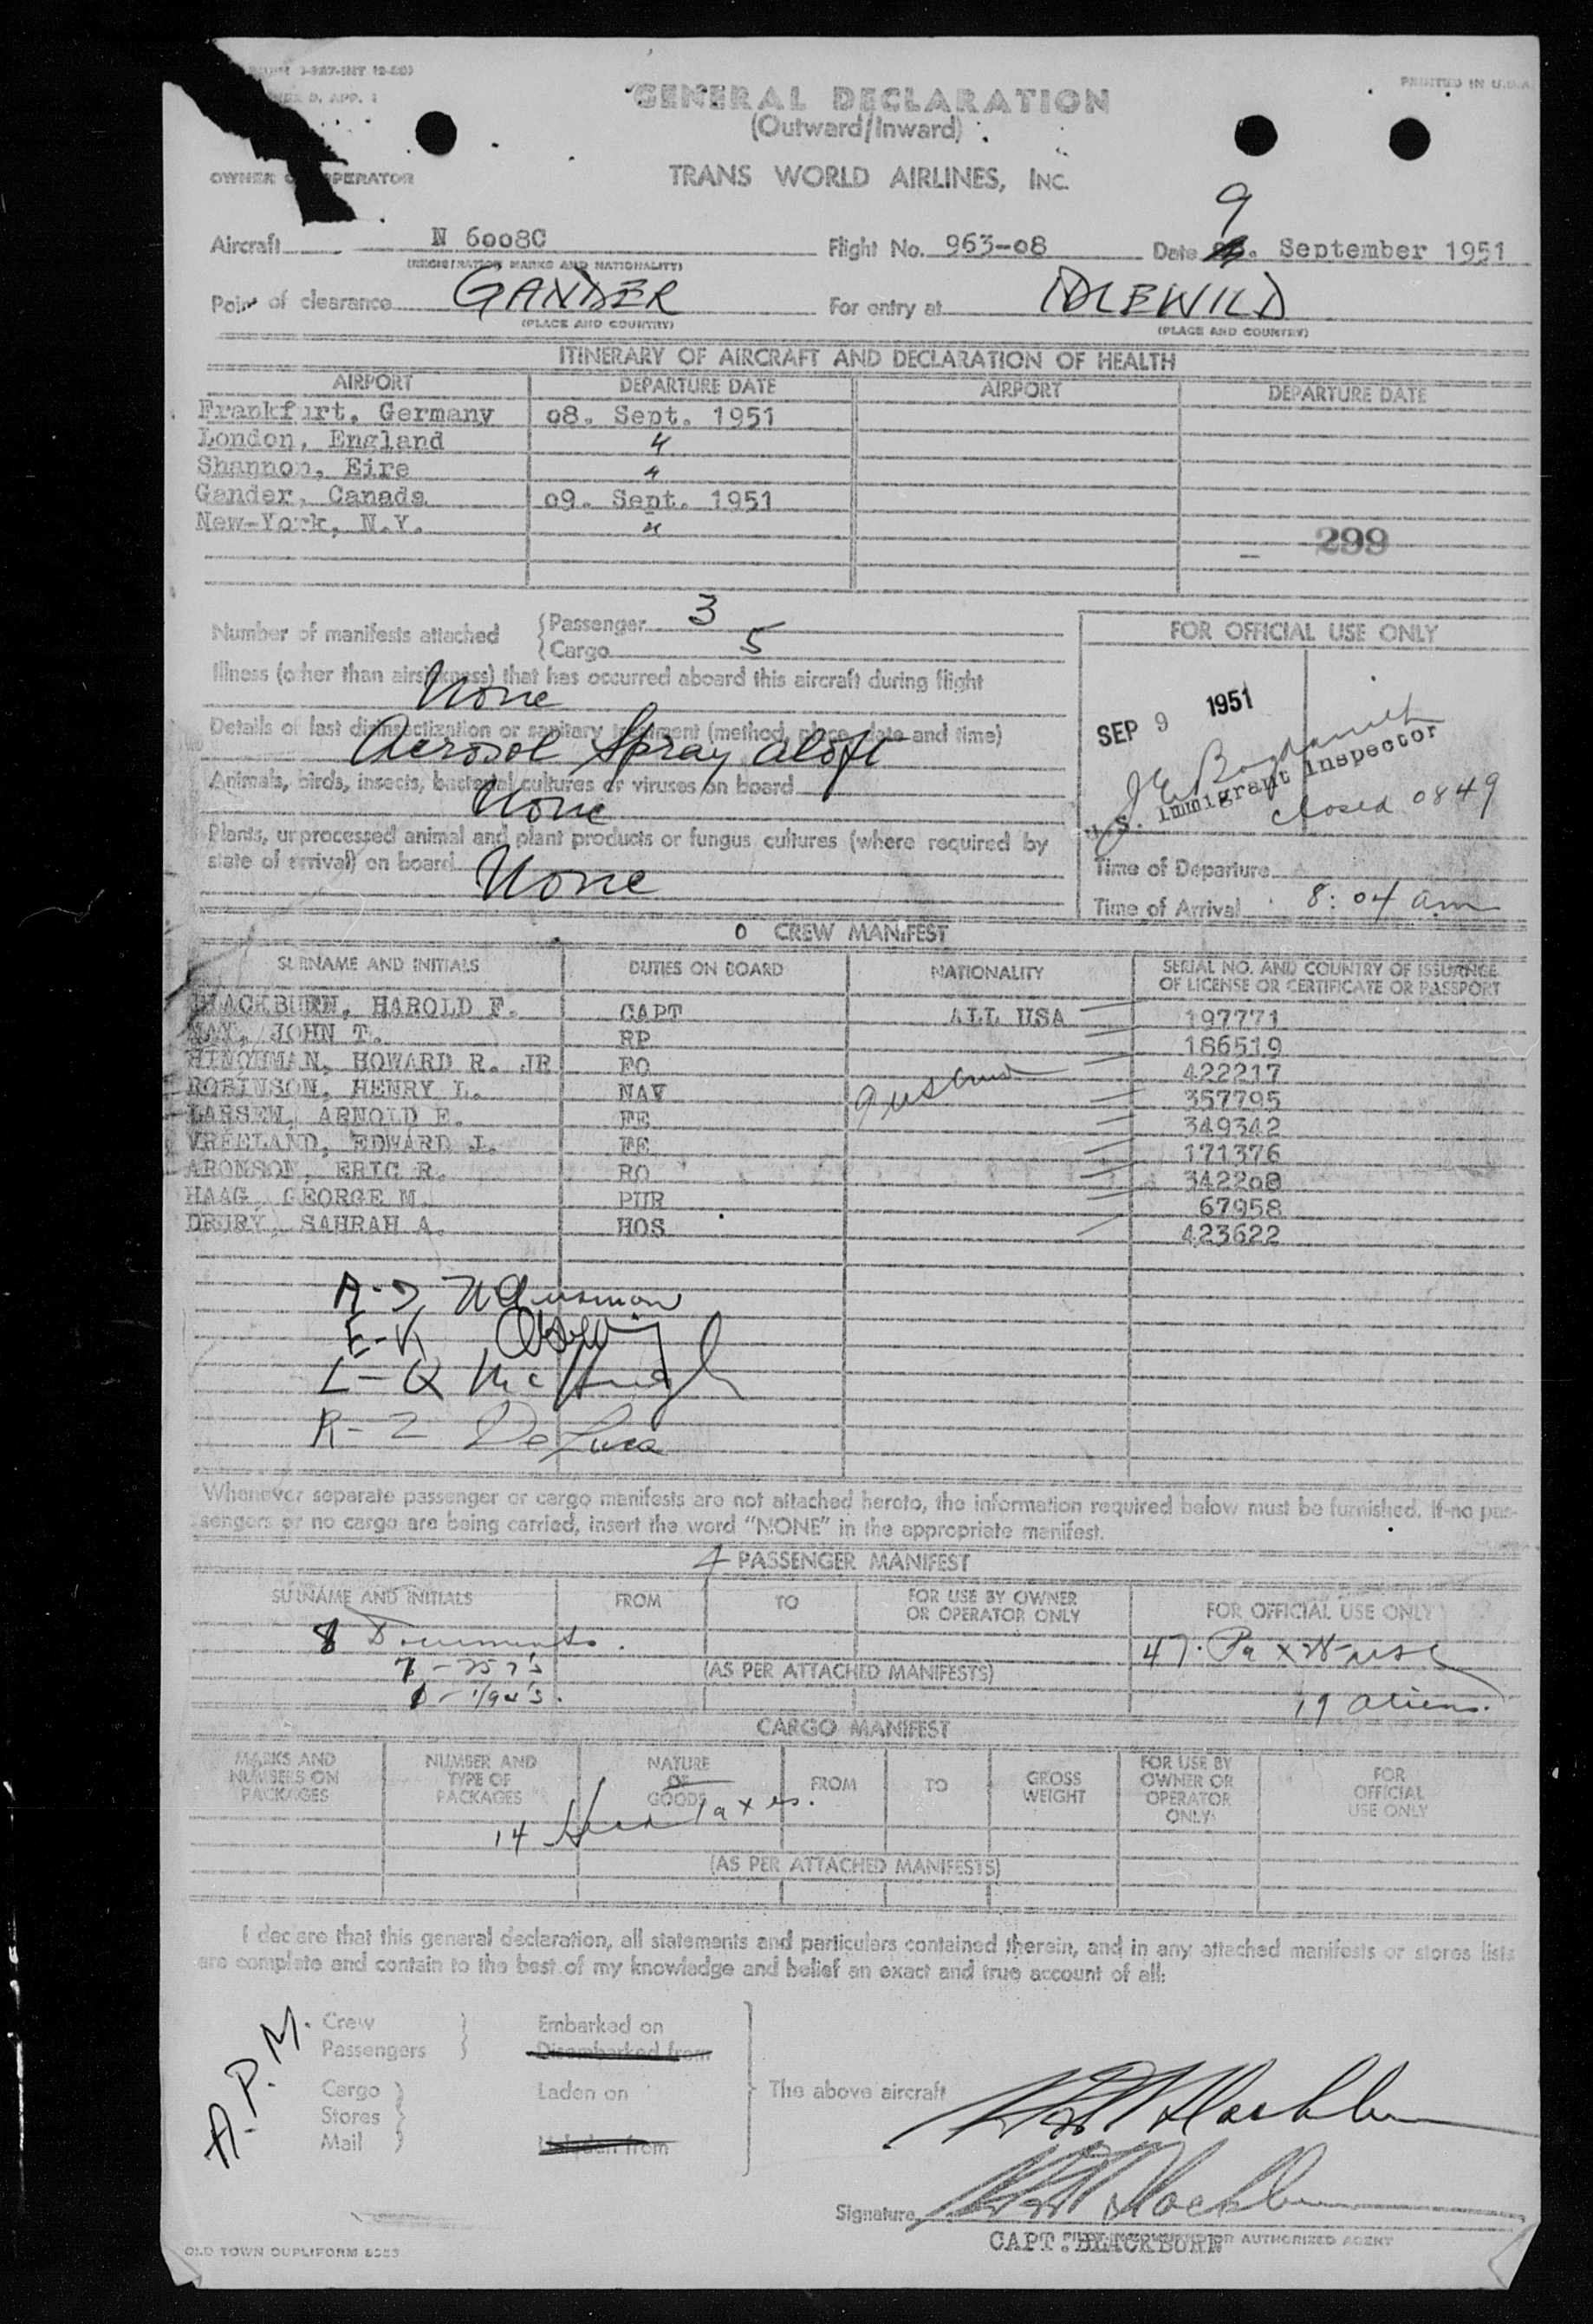 PRINTED IN U.S.A.
D. APP. 1
GENERAL DECLARATION
(Outward/Inward)
OWNER O OPERATOR
TRANS WORLD AIRLINES, INC.
9
Aircraft N 6008C Flight No. 963-08 Date September 1951
(REGISTRATION MARKS AND NATIONALITY)
Point of clearance GANDER For entry at IDLEWILD
(PLACE AND COUNTRY) (PLACE AND COUNTRY)
ITINERARY OF AIRCRAFT AND DECLARATION OF HEALTH
AIRPORT DEPARTURE DATE AIRPORT DEPARTURE DATE
Frankfurt, Germany 08. Sept. 1951
London, England "
Shannon, Eire "
Gander, Canada 09. Sept. 1951
New-York, N.Y. "
299
Number of manifests attached Passenger 3
Cargo 5
FOR OFFICIAL USE ONLY
Illness (other than airsickness) that has occurred aboard this aircraft during flight
None
SEP 9 1951
Details of last disinsectization or sanitary treatment (method, place, date and time)
Aerosol Spray aloft
U.S. Immigrant Inspector
Animals, birds, insects, bacterial cultures or viruses on board
None
closed 0849
Plants, unprocessed animal and plant products or fungus cultures (where required by
state of arrival) on board None
Time of Departure
Time of Arrival 8:04 am
0 CREW MANIFEST
SURNAME AND INITIALS DUTIES ON BOARD NATIONALITY SERIAL NO. AND COUNTRY OF ISSUANCE
OF LICENSE OR CERTIFICATE OR PASSPORT
BLACKBURN, HAROLD F. CAPT ALL USA 197771
MAY, JOHN T. RP 186519
HINCHMAN, HOWARD R. JR FO 422217
ROBINSON, HENRY L. NAV 357795
LARSEN, ARNOLD E. FE 349342
VREELAND, EDWARD J. FE 171376
ARONSON, ERIC R. RO 342200
HAAG, GEORGE M. PUR 67958
DRURY, SAHRAH A. HOS 423622
E-K
L-Q McHugh
R-Z DeLuca
Whenever separate passenger or cargo manifests are not attached hereto, the information required below must be furnished. If no pas-
sengers or no cargo are being carried, insert the word "NONE" in the appropriate manifest.
4 PASSENGER MANIFEST
SURNAME AND INITIALS FROM TO FOR USE BY OWNER
OR OPERATOR ONLY FOR OFFICIAL USE ONLY
8 Documents.
47. Pax
7 - 257's (AS PER ATTACHED MANIFESTS)
19 aliens.
CARGO MANIFEST
MARKS AND
NUMBERS ON
PACKAGES NUMBER AND
TYPE OF
PACKAGES NATURE
OF
GOODS FROM TO GROSS
WEIGHT FOR USE BY
OWNER OR
OPERATOR
ONLY FOR
OFFICIAL
USE ONLY
14 Head Taxes.
(AS PER ATTACHED MANIFESTS)
I declare that this general declaration, all statements and particulars contained therein, and in any attached manifests or stores lists
are complete and contain to the best of my knowledge and belief an exact and true account of all:
A.P.M.
Crew Embarked on
Passengers Disembarked from
Cargo Laden on The above aircraft
Stores
Mail Unladen from
Signature
CAPT. BLACKBURN OR AUTHORIZED AGENT
OLD TOWN DUPLIFORM